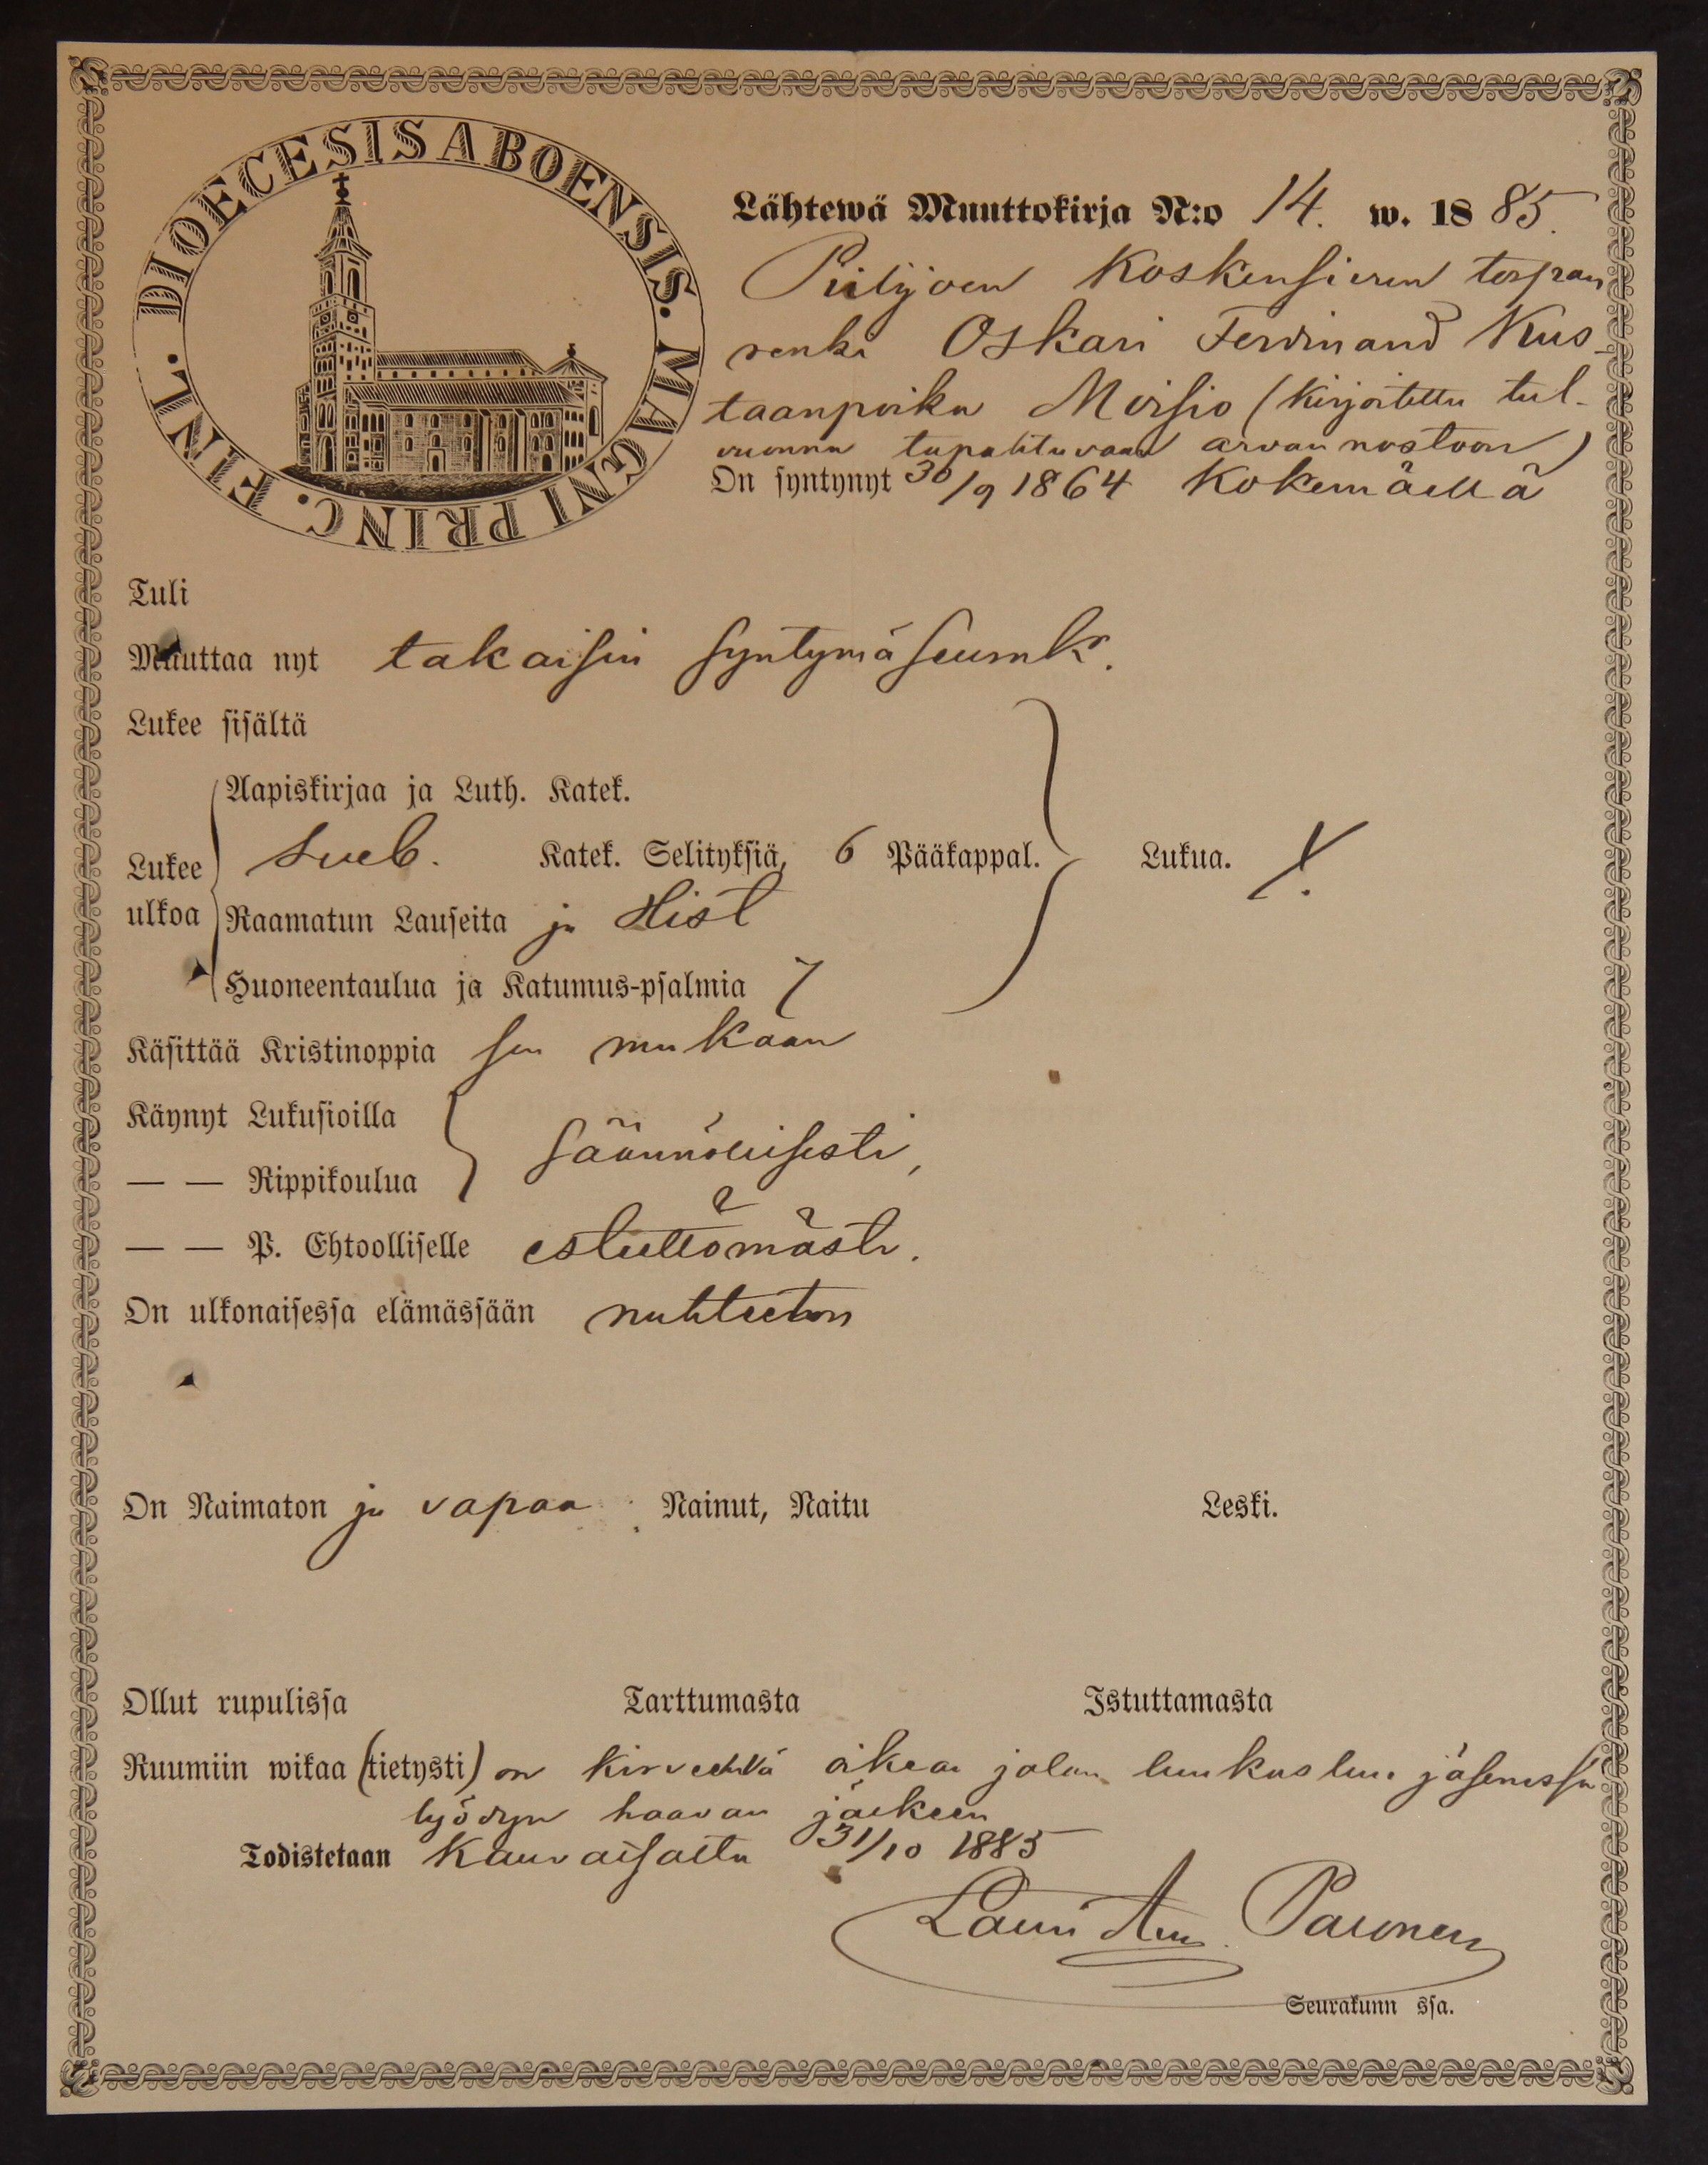 DIOECESIS ABOENSIS. MAGNI PRINC. FINL.
Lähtewä Muuttokirja N:o 14. w. 1885.
Piilijoen Koskensieren torpan
renki Oskari Ferdinand Kus-
taanpoika Moisio (kirjoitettu tul-
vuonna tapahtuvaan arvannostoon)
On syntynyt 30/9 1864 Kokemäellä
Tuli
Muuttaa nyt takaisin syntymäseurak.
Lukee sisältä
Aapiskirjaa ja Luth. Katek.
Lukee Sveb. Katek. Selityksiä, 6 Pääkappal. Lukua.
ulkoa Raamatun Lauseita ja Hist
Huoneentaulua ja Katumus-psalmia 7
Käsittää Kristinoppia sen mukaan
Käynyt Lukusioilla
säännöllisesti,
— — Rippikoulua
— — P. Ehtoolliselle esteettömästi.
On ulkonaisessa elämässään nuhteeton
On Naimaton ja vapaa. Nainut, Naitu Leski.
Ollut rupulissa Tarttumasta Istuttamasta
Ruumiin wikaa (tietysti) on kirveellä oikean jalan jäsenessä
lyödyn haavan jälkeen
Todistetaan Kauvatsalla 31/10 1885
Lauri Paronen
Seurakunn ssa.